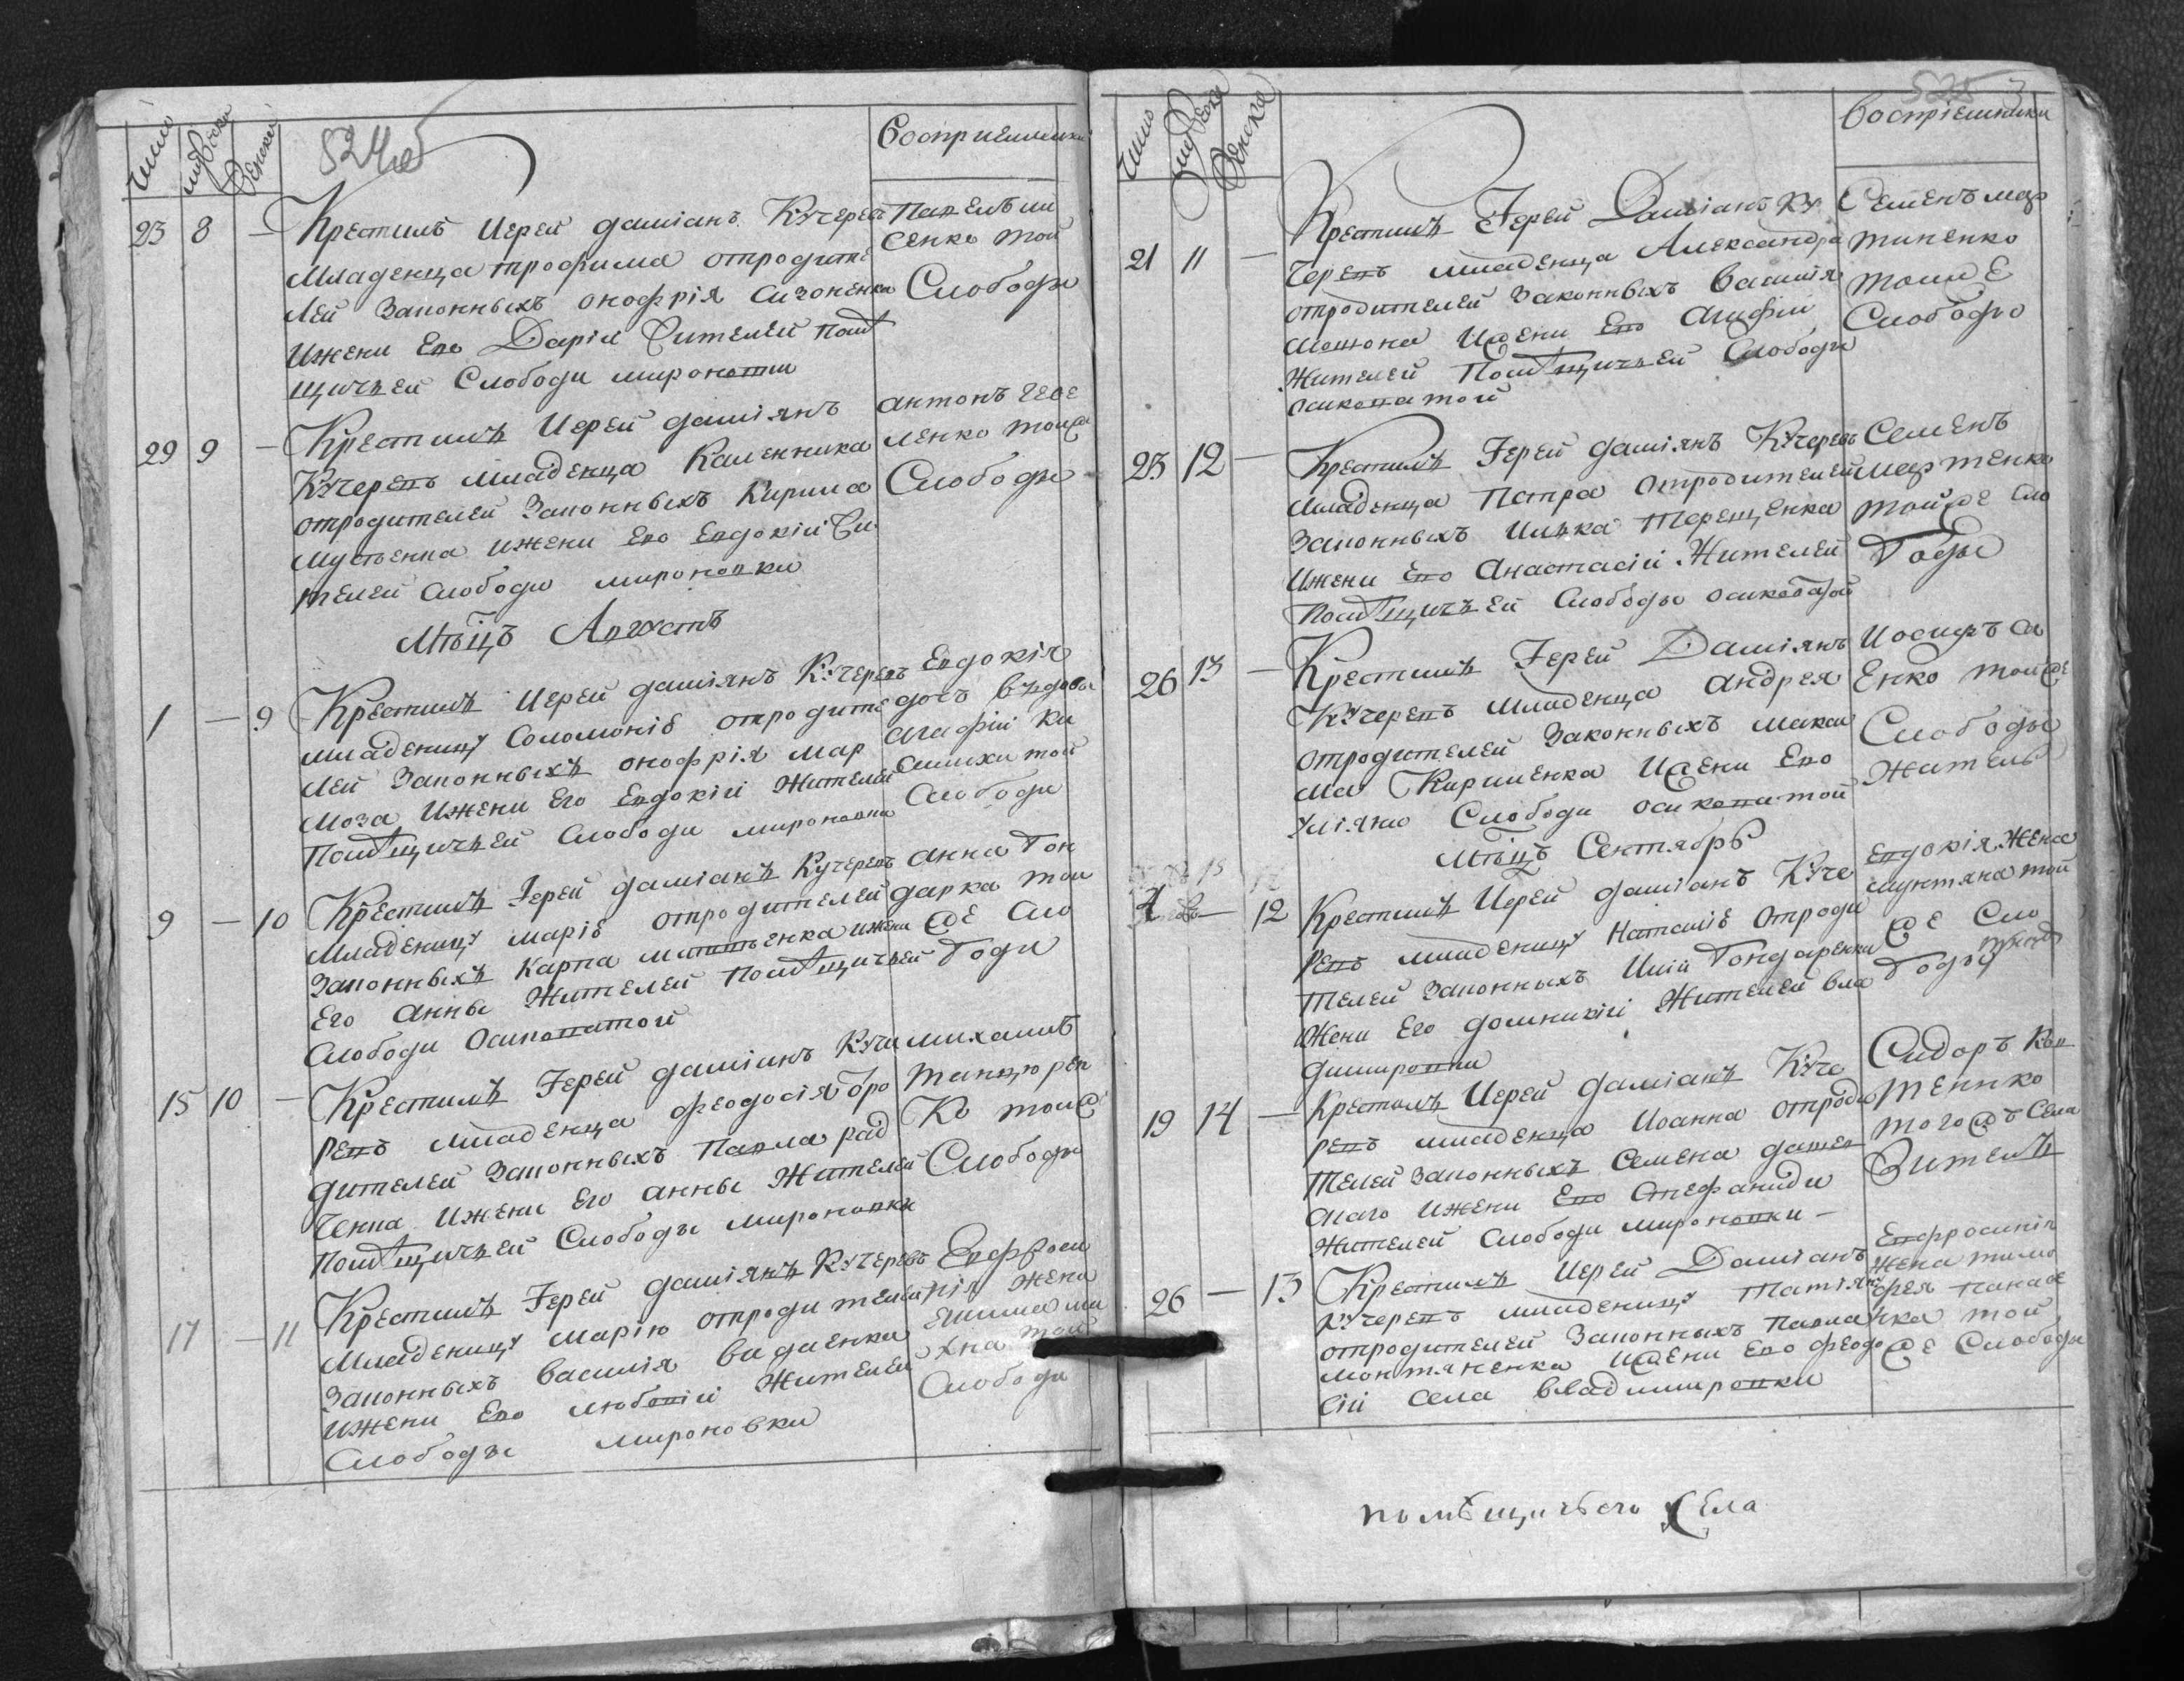 число
мужеска
женска
824об
Восприемники
23 8 — Крестилъ Иерей Даміанъ Кучеревъ
Младенца трофима отродите
лей Законныхъ онофрія Сизоненка
Ижени Его Даріи Жителей пом
щичьей Слободи мироновки
Павелъ ми
сенко той
Слободи
29 9 — Крестилъ Иерей даміянъ
Кучеревъ младенца Каленника
отродителей Законныхъ Кирила
ижени Его Евдокіи Жи
телей Слободи мироновки
антонъ
ленко тойже
Слободы
Мѣцъ Августъ
1 — 9 Крестилъ Иерей даміянъ Кучеревъ
младеницу Соломоніѣ отродите
лей Законныхъ онофрія мар
моза Ижени Его Евдокіи Жителей
помѣщичьей Слободи мироновки
Евдокія
дочь вьдовы
агафіи Ки
той
Слободи
9 — 10 Крестилъ Іерей даміанъ Кучеревъ
Младеницу маріѣ отродителей
Законныхъ Карпа ижени
Его анны Жителей помѣщичьей
Слободи Осиковатой
анна бон
дарка той
же Сло
боди
15 10 — Крестилъ Іерей даміанъ Куче
ревъ младенца феодосія отро
дителей Законныхъ Павла рад
ченка Ижени Его анны Жителей
помѣщичьей Слободы мироновки
михаилъ
танцюрен
Ко тойже
Слободы
17 — 11 Крестилъ Іерей даміянъ Кучеревъ
Младеницу марію отродителей
Законныхъ василія
ижени Его любовіи Жителей
Слободы мироновки
Евфроси
нія жена
той
Слободи
число
мужеска
женска
825
3
Воспріемники
21 11 — Крестилъ Іерей Даміанъ Ку
черевъ младенца Александра
отродителей Законныхъ василія
Ижени Его Агафіи
Жителей помѣщичьей Слободы
осиковатой
Семенъ мар
тиненко
тойже
Слободы
23 12 — Крестилъ Іерей даміянъ Кучеревъ
младенца Петра отродителей
Законныхъ Илька терещенка
Ижени Его анастасіи Жителей
помѣщичьей Слободы осиковатой
Семенъ
мартенко
тойже Сло
боды
26 13 — Крестилъ Іерей Даміянъ
Кучеревъ младенца андрея
отродителей Законныхъ макси
ма Кириленка Ижени Его
уліянію Слободи осиковатой
Иосифъ
Енко тойже
Слободы
Житель
Мѣцъ Сентябръ
4 — 12 Крестилъ Иерей даміанъ Куче
ревъ младеницу Наталіѣ отроди
телей Законныхъ Иліи бондаренки
Жени Его домникіи Жителей вла
димировки
Евдокія Жена
той
же Сло
боды
19 14 — Крестилъ Иерей даміанъ Куче
ревъ младенца Иоанна отроди
телей Законныхъ Семена
Ижени Его Стефаниди
Жителей Слободи мироновки —
Сидоръ Кон
тенико
тогожъ Села
Житель
26 — 13 Крестилъ Иерей Даміанъ
Кучеревъ младеницу татіян
отродителей Законныхъ павла
монтяненка Ижени Его феодо
сіи Села владимировки
Евфросинія
Жена тимо
фея
той
же Слободи
помѣщичьего Села